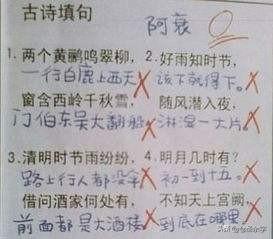 古诗填句 阿衰 0
1. 两个黄鹂鸣翠柳， 2. 好雨知时节，
一行白鹿上西天 该下就得下。
窗含西岭千秋雪， 随风潜入夜，
门伯东吴大翻船 淋湿一大片。
3. 清明时节雨纷纷， 4. 明月几时有？
路上行人都没伞 初一到十五。
借问酒家何处有， 不知天上宫阙，
前面都是大酒楼 到底在哪里